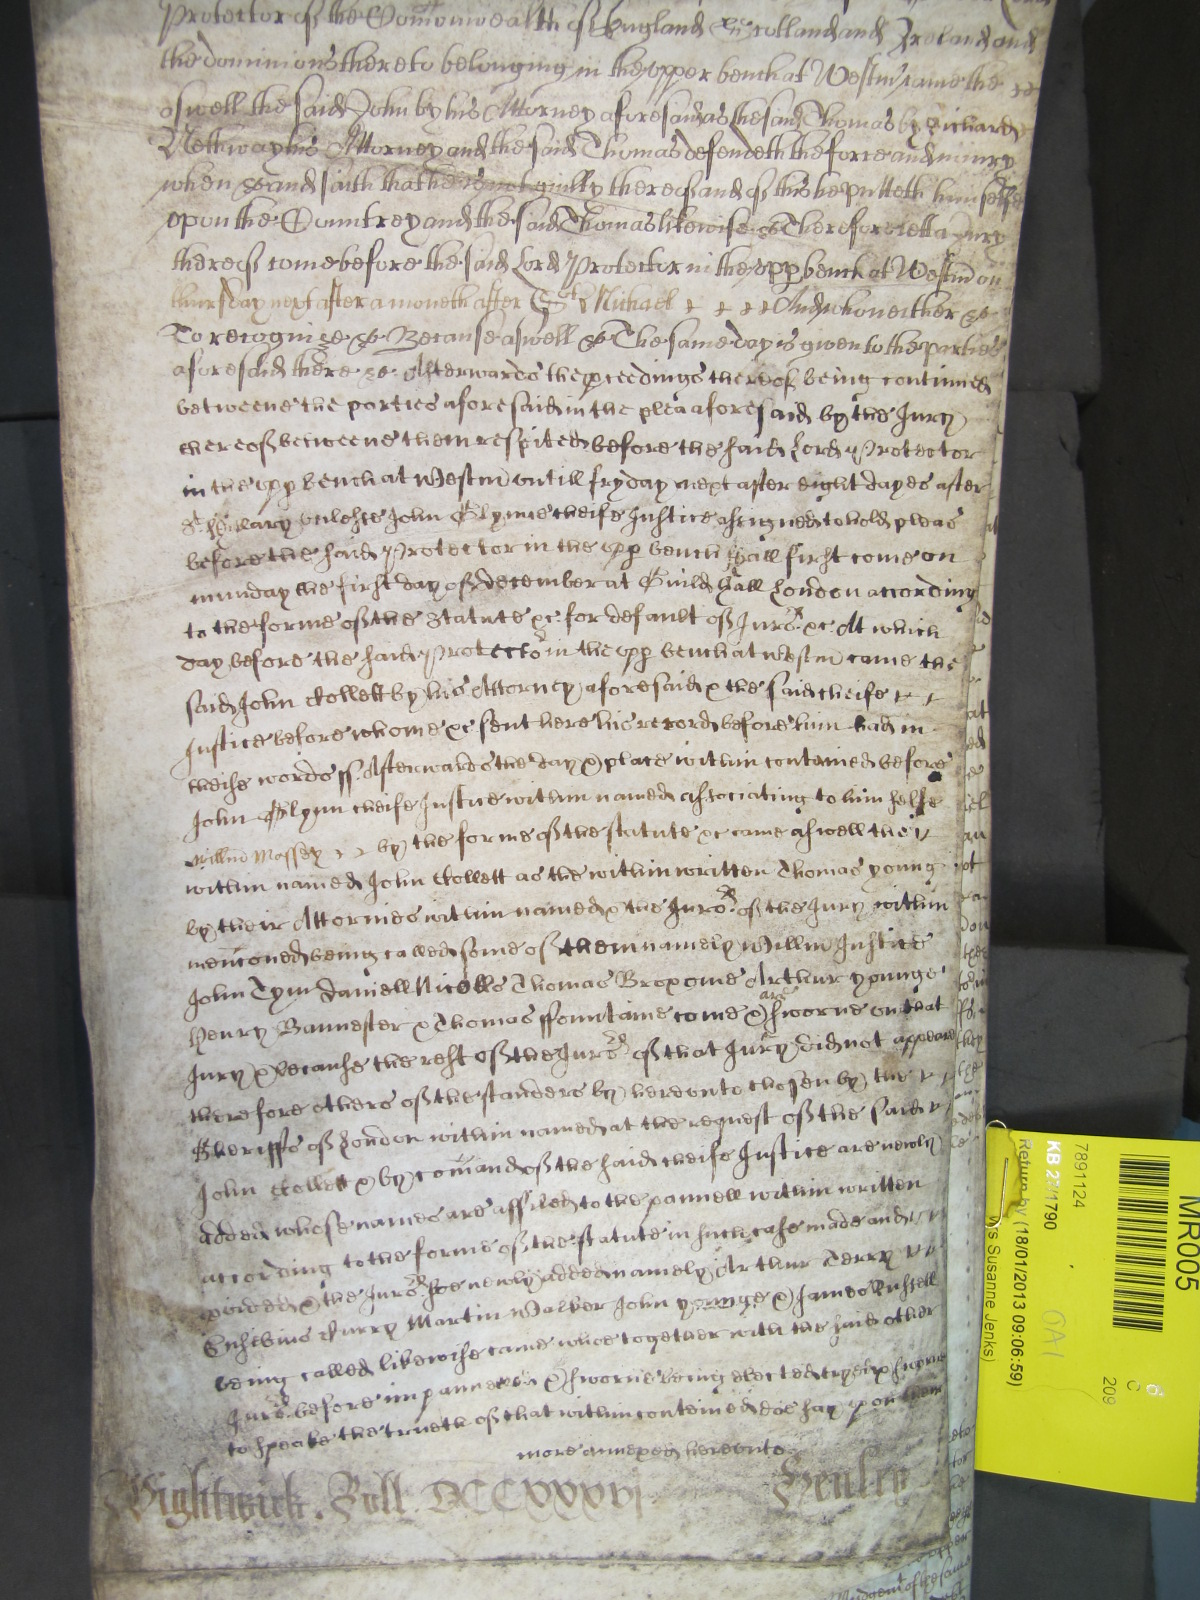 Protector of the Com̄onwealth of England Scotland and Ireland and
the dominions thereto belonging in the upper bench at Westm̄ came the
aswell the said John by his Attorney aforesaid as the said Thomas by Richard
Nethway his Attorney and the said Thomas defendeth the force and iniury
when &c and saith that he is not guilty thereof and of this he putteth himselfe
upon the Countrey and the said Thomas likewise &c Therefore lett a Jury
thereof come before the said Lord Protector in the upp bench at Westm̄ on
thursday next after a moneth after St Michael And who neither &c
To recognize &c Because aswell &c The same day is given to the parties
aforesaid there &c. Afterwards the pceedings thereof being continued
betweene the parties aforesaid in the plea aforesaid by the Jury
thereof betweene them respited before the said Lord Protector
in the upp bench at Westm̄ untill fryday next after eight dayes after
St Hillary unlesse John Glynne cheife Justice assigned to hold pleas
before the said Protector in the upp bench shall first come on
munday the first day of December at Guild hall London according
to the forme of the Statute &c for default of Juro.rs &c At which
day before the said Protecto in the upp bench at Westm̄ came the
said John Collett by his Attorney aforesaid & the said cheife
Justice before whome &c sent here his record before him had in
theise words ss. Afterwards the day & place within conteined before
John Glynn cheife Justice within named associating to him selfe
Willm̄ Massey by the forme of the statute &c came aswell the
within named John Collett as the within written Thomas young
by their Attornies within named & the Juro.rs of the Jury within
menc̄oned being called some of them namely Willm̄ Justice
John Tym Daniell Nicolls Thomas Broxome Arthur younge
Henry Bannester & Thomas ffountaine come & are sworne on that
Jury & because the rest of the Juro.rs of that Jury did not appeare
therefore others of the standers by hereunto chosen by the
Sheriffs of London within named at the request of the said
John Collett & by com̄and of the said cheife Justice are newly
added whose names are affiled to the pannell within written
according to the forme of the statute in such case made and
pvided & the Juro.rs soe newly added namely Arthur Terry
Eusebius Curry Martin Walker John younge & James Russell
being called likewise came who together with the said other
Juro.rs before impannelled & sworne being elected tryed & sworne
to speake the trueth of that within conteined doe say upon them
more annexed hereunto
Wightwick. Roll. DCCXXXVI Henley
MR005
7891124
KB 27/1790
Return by (18/01/2013 09:06:59)
Ms Susanne Jenks)
OA1
6
C
209